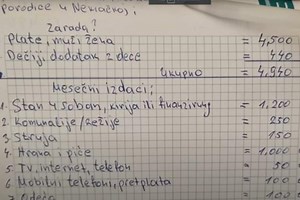 porodice u Nemačkoj.
Zarada?
Plate, muž i žena = 4,500
Dečiji dodatak 2 dece = 440
ukupno = 4.940
Mesečni izdaci;
1. Stan 4 soban, kirija ili finanzirung = 1,200
2. Komunalije/Režije = 250
3. Struja = 150
4. Hrana i piće = 1,000
5. TV, internet, telefon = 50
6. Mobilni telefoni, pretplata = 100